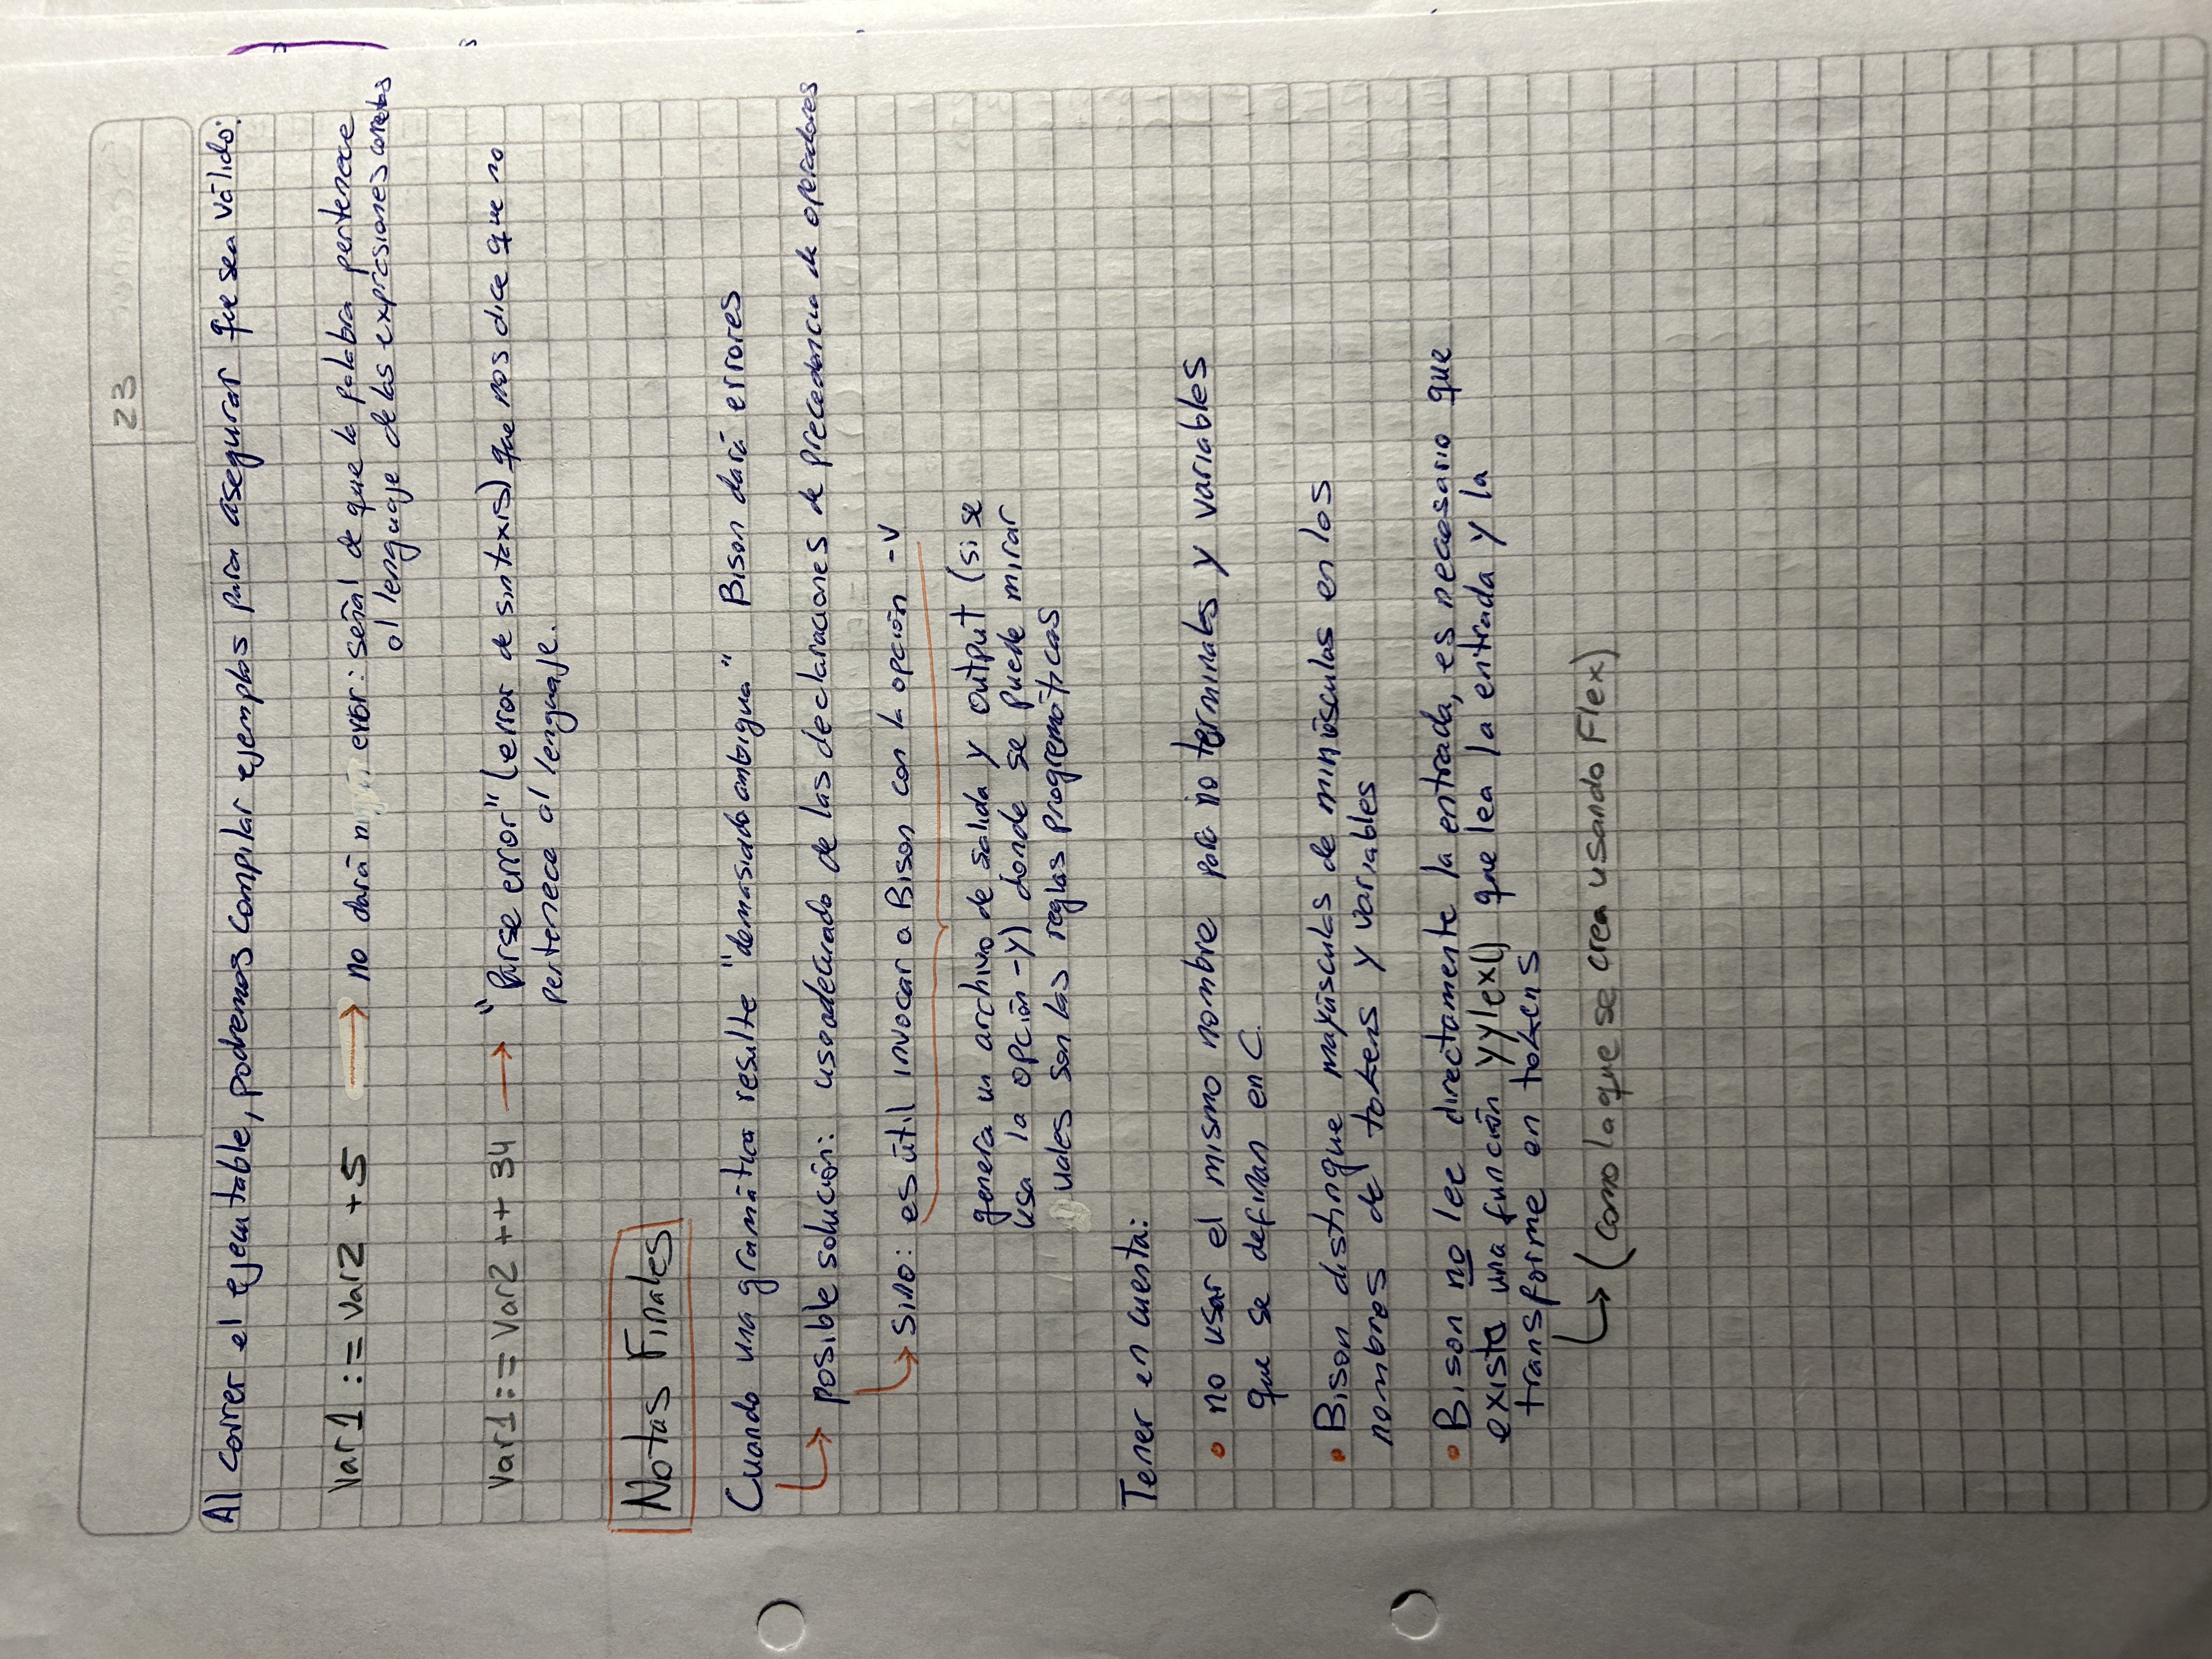 23
Al correr el ejecutable, podremos compilar ejemplos para asegurar que sea válido:
Var1 := Var2 + 5 → no dará error: señal de que la palabra pertenece
al lenguaje de las expresiones correctas
Var1 := Var2 ++ 34 → "Parse error" (error de sintaxis) que nos dice que no
pertenece al lenguaje.
Notas Finales
Cuando una gramática resulte "demasiado ambigua" Bison dará errores
posible solución: uso adecuado de las declaraciones de precedencia de operadores
Sino: es útil invocar a Bison con la opción -v
genera un archivo de salida y output (si se
usa la opción -y) donde se puede mirar
uales son las reglas progremáticas
Tener en cuenta:
• no usar el mismo nombre para no terminales y variables
que se definan en C.
• Bison distingue mayúsculas de minúsculas en los
nombres de tokens y variables
• Bison no lee directamente la entrada, es necesario que
exista una función yylex() que lea la entrada y la
transforme en tokens
(como la que se crea usando Flex)